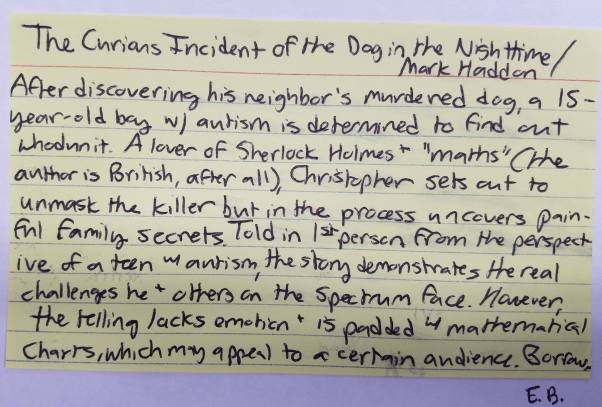 The Curious Incident of the Dog in the Nighttime/
Mark Haddon
After discovering his neighbor's murdered dog, a 15-
year-old boy w/ autism is determined to find out
whodunit. A lover of Sherlock Holmes + "maths" (the
author is British, after all), Christopher sets out to
unmask the killer but in the process uncovers pain-
ful family secrets. Told in 1st person from the perspect-
ive of a teen w/ autism, the story demonstrates the real
challenges he + others on the spectrum face. However,
the telling lacks emotion + is padded w/ mathematical
charts, which may appeal to a certain audience. Borrow.
E.B.